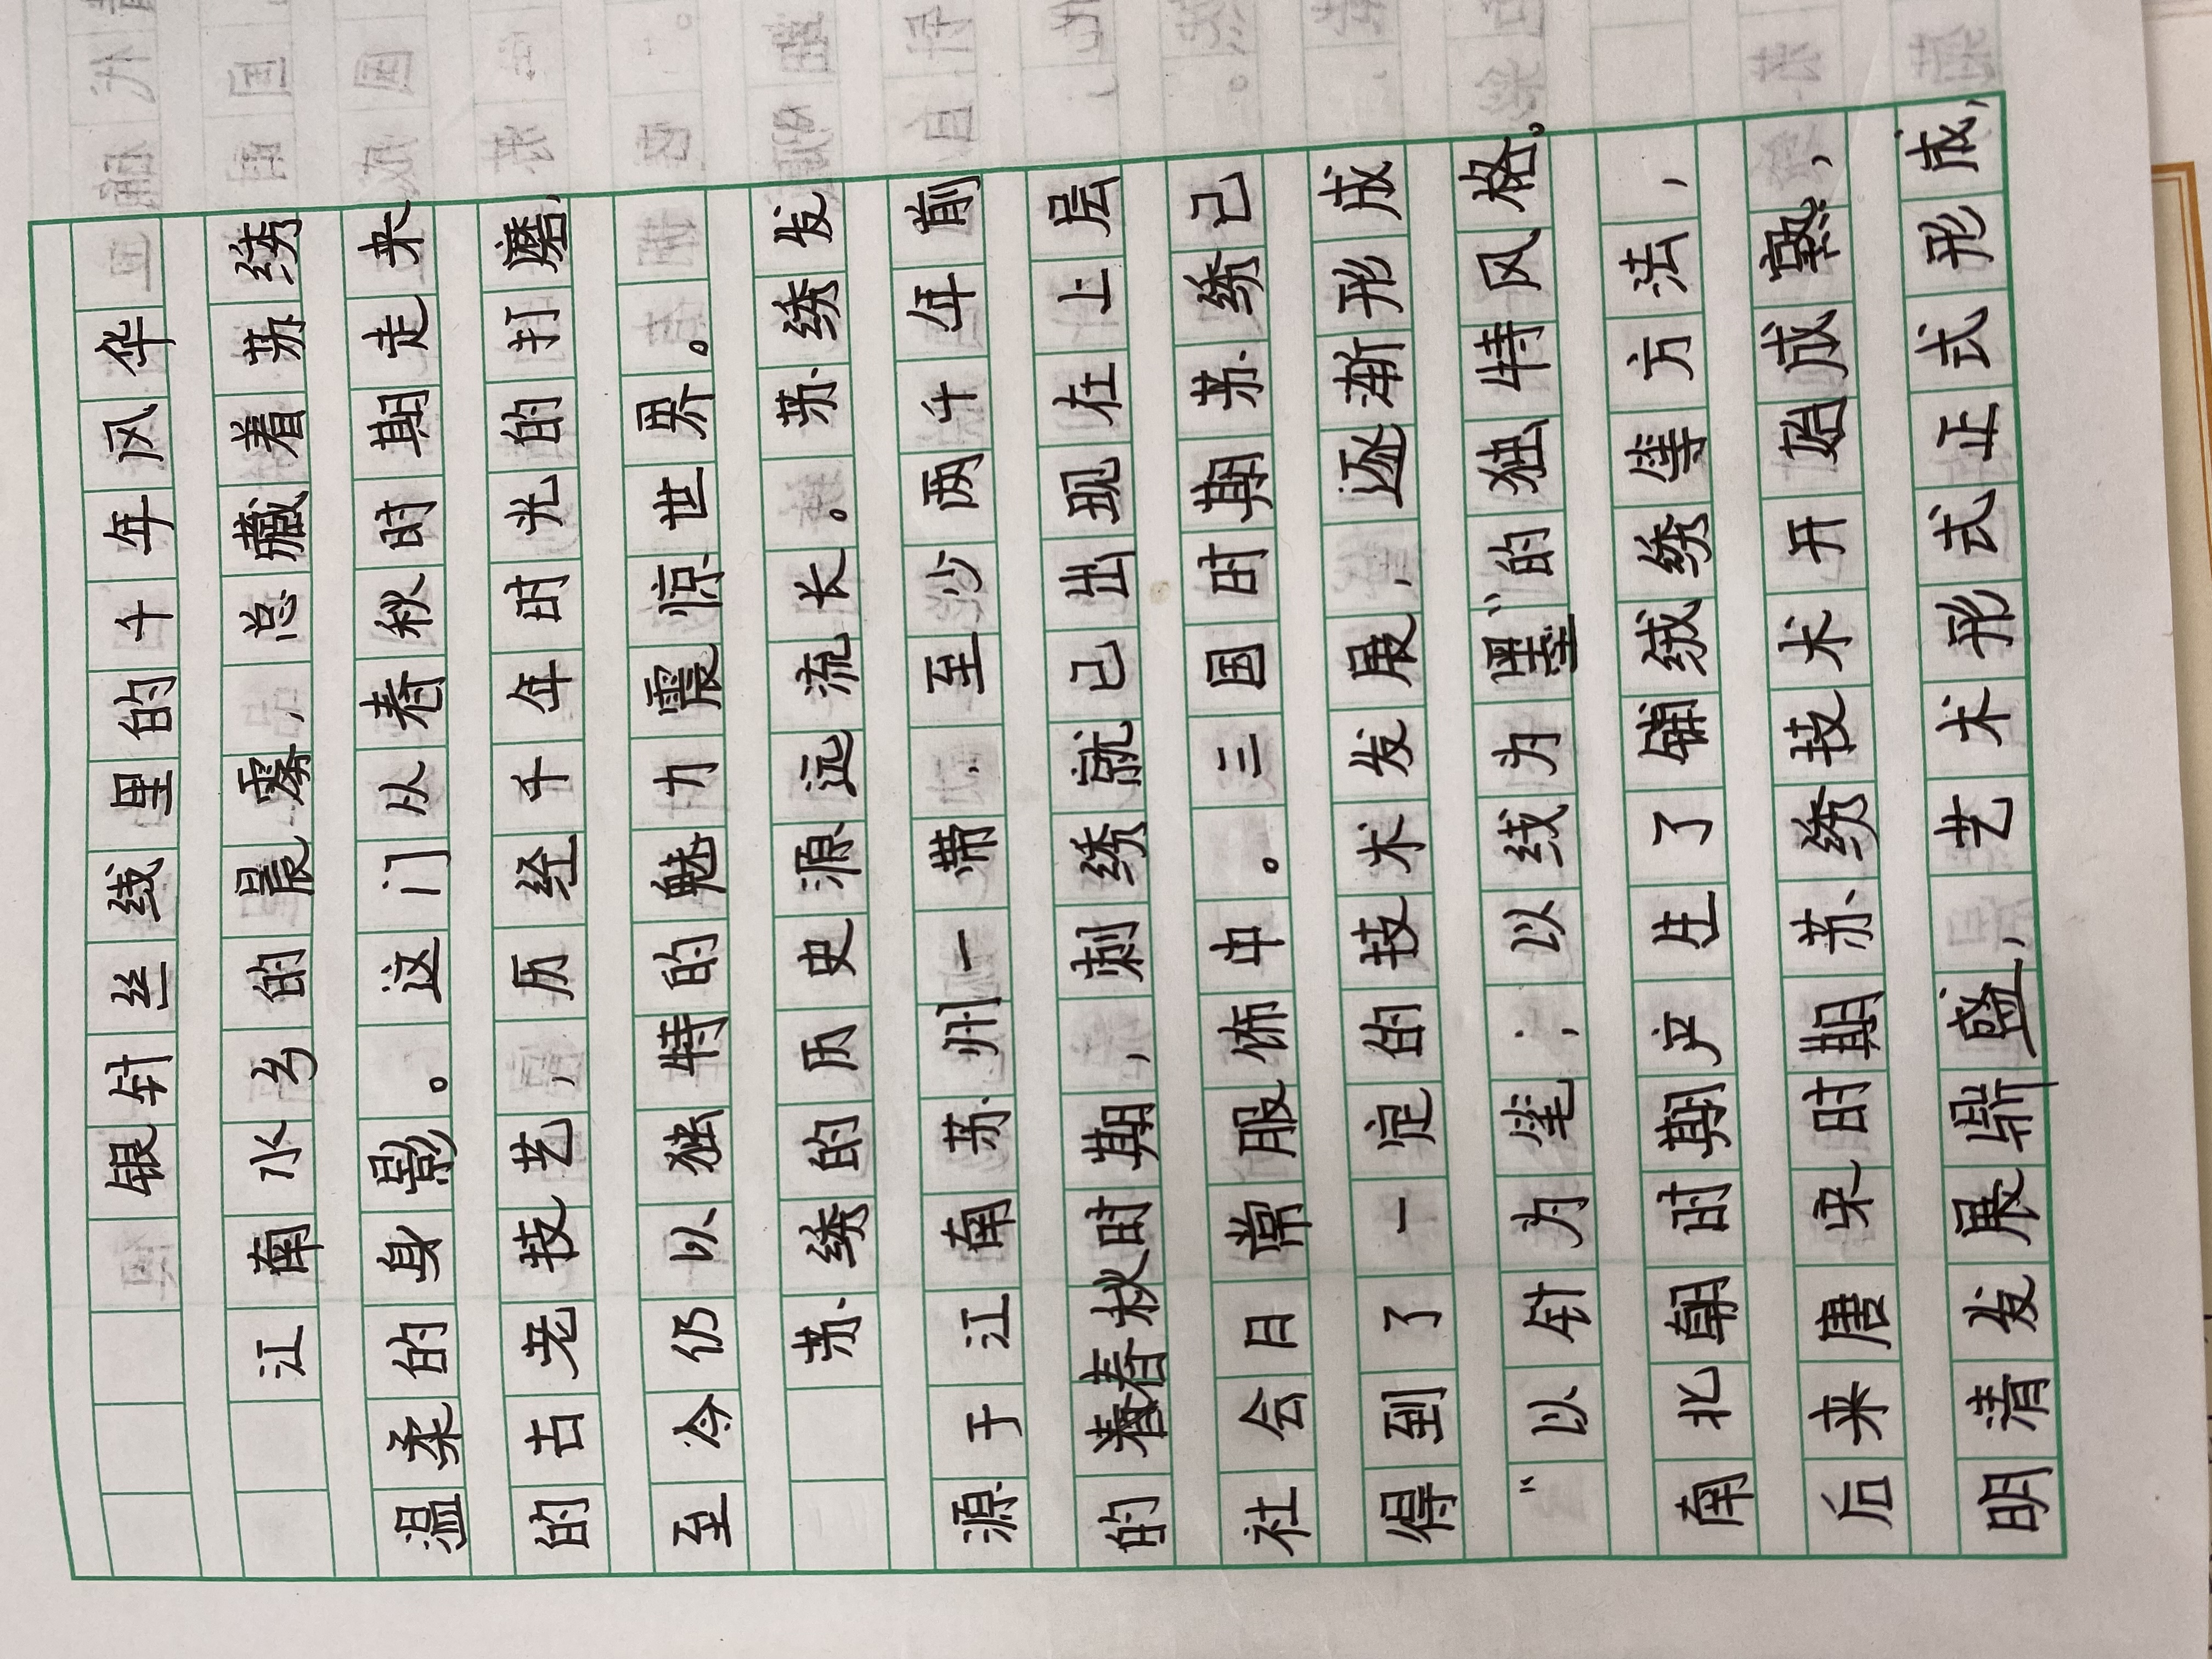 银针丝线里的千年风华
江南水乡的晨雾，总藏着苏绣
温柔的身影。这门从春秋时期走来
的古老技艺，历经千年时光的打磨，
至今仍以独特的魅力震惊世界。
苏绣的历史源远流长。苏绣发
源于江南苏州一带，至少两千年前
的春秋时期，刺绣就已出现在上层
社会日常服饰中。三国时期苏绣已
得到了一定的技术发展，逐渐形成
“以针为笔，以线为墨”的独特风格。
南北朝时期产生了铺绒绣等方法，
后来唐宋时期苏绣技术开始成熟，
明清发展鼎盛，艺术形式正式形成，